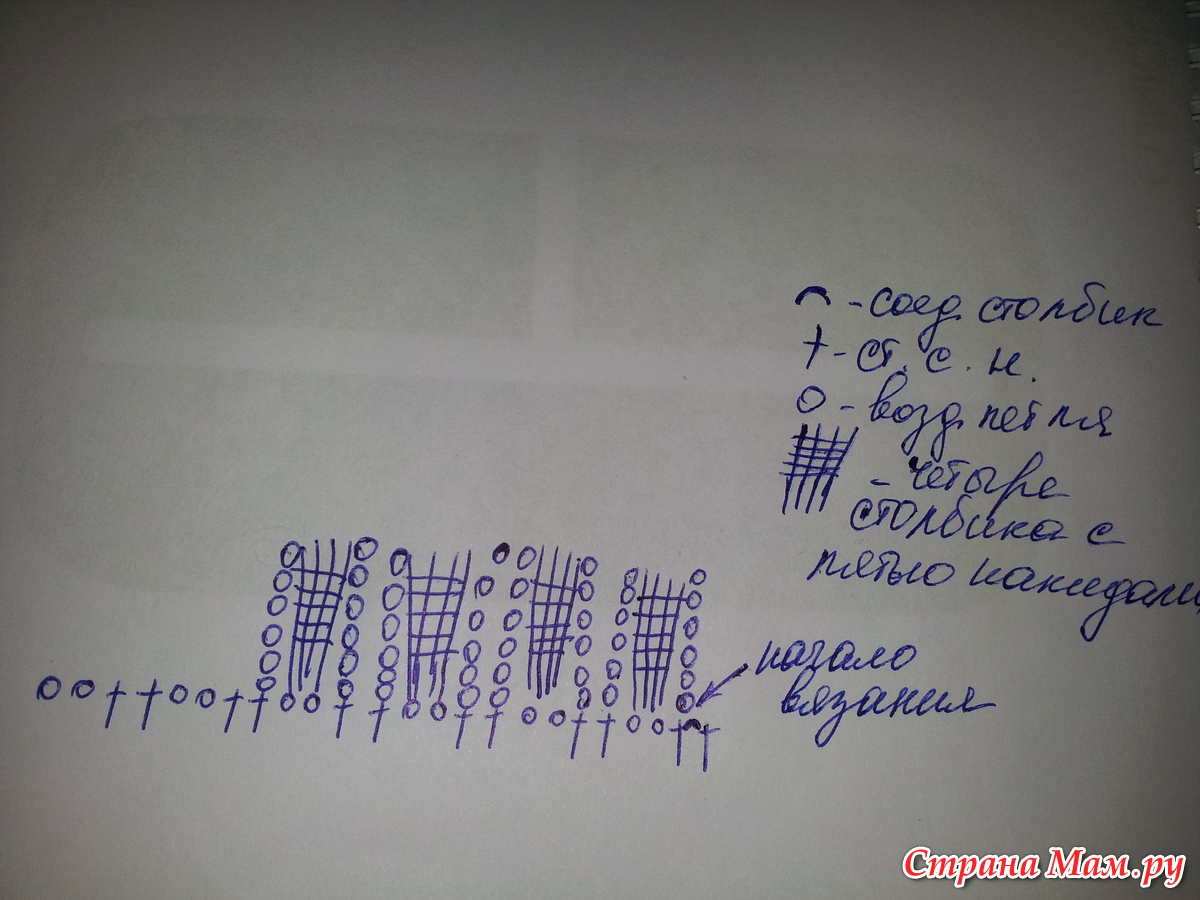 - соед. столбик
- ст. с. н.
- возд. петля
- четыре
столбика с
пятью накидами
начало
вязания
Страна Мам.ру